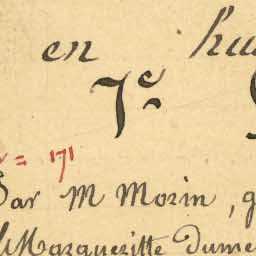 en hui
7e
= 171
Par M Morin, g
Margueritte Dume